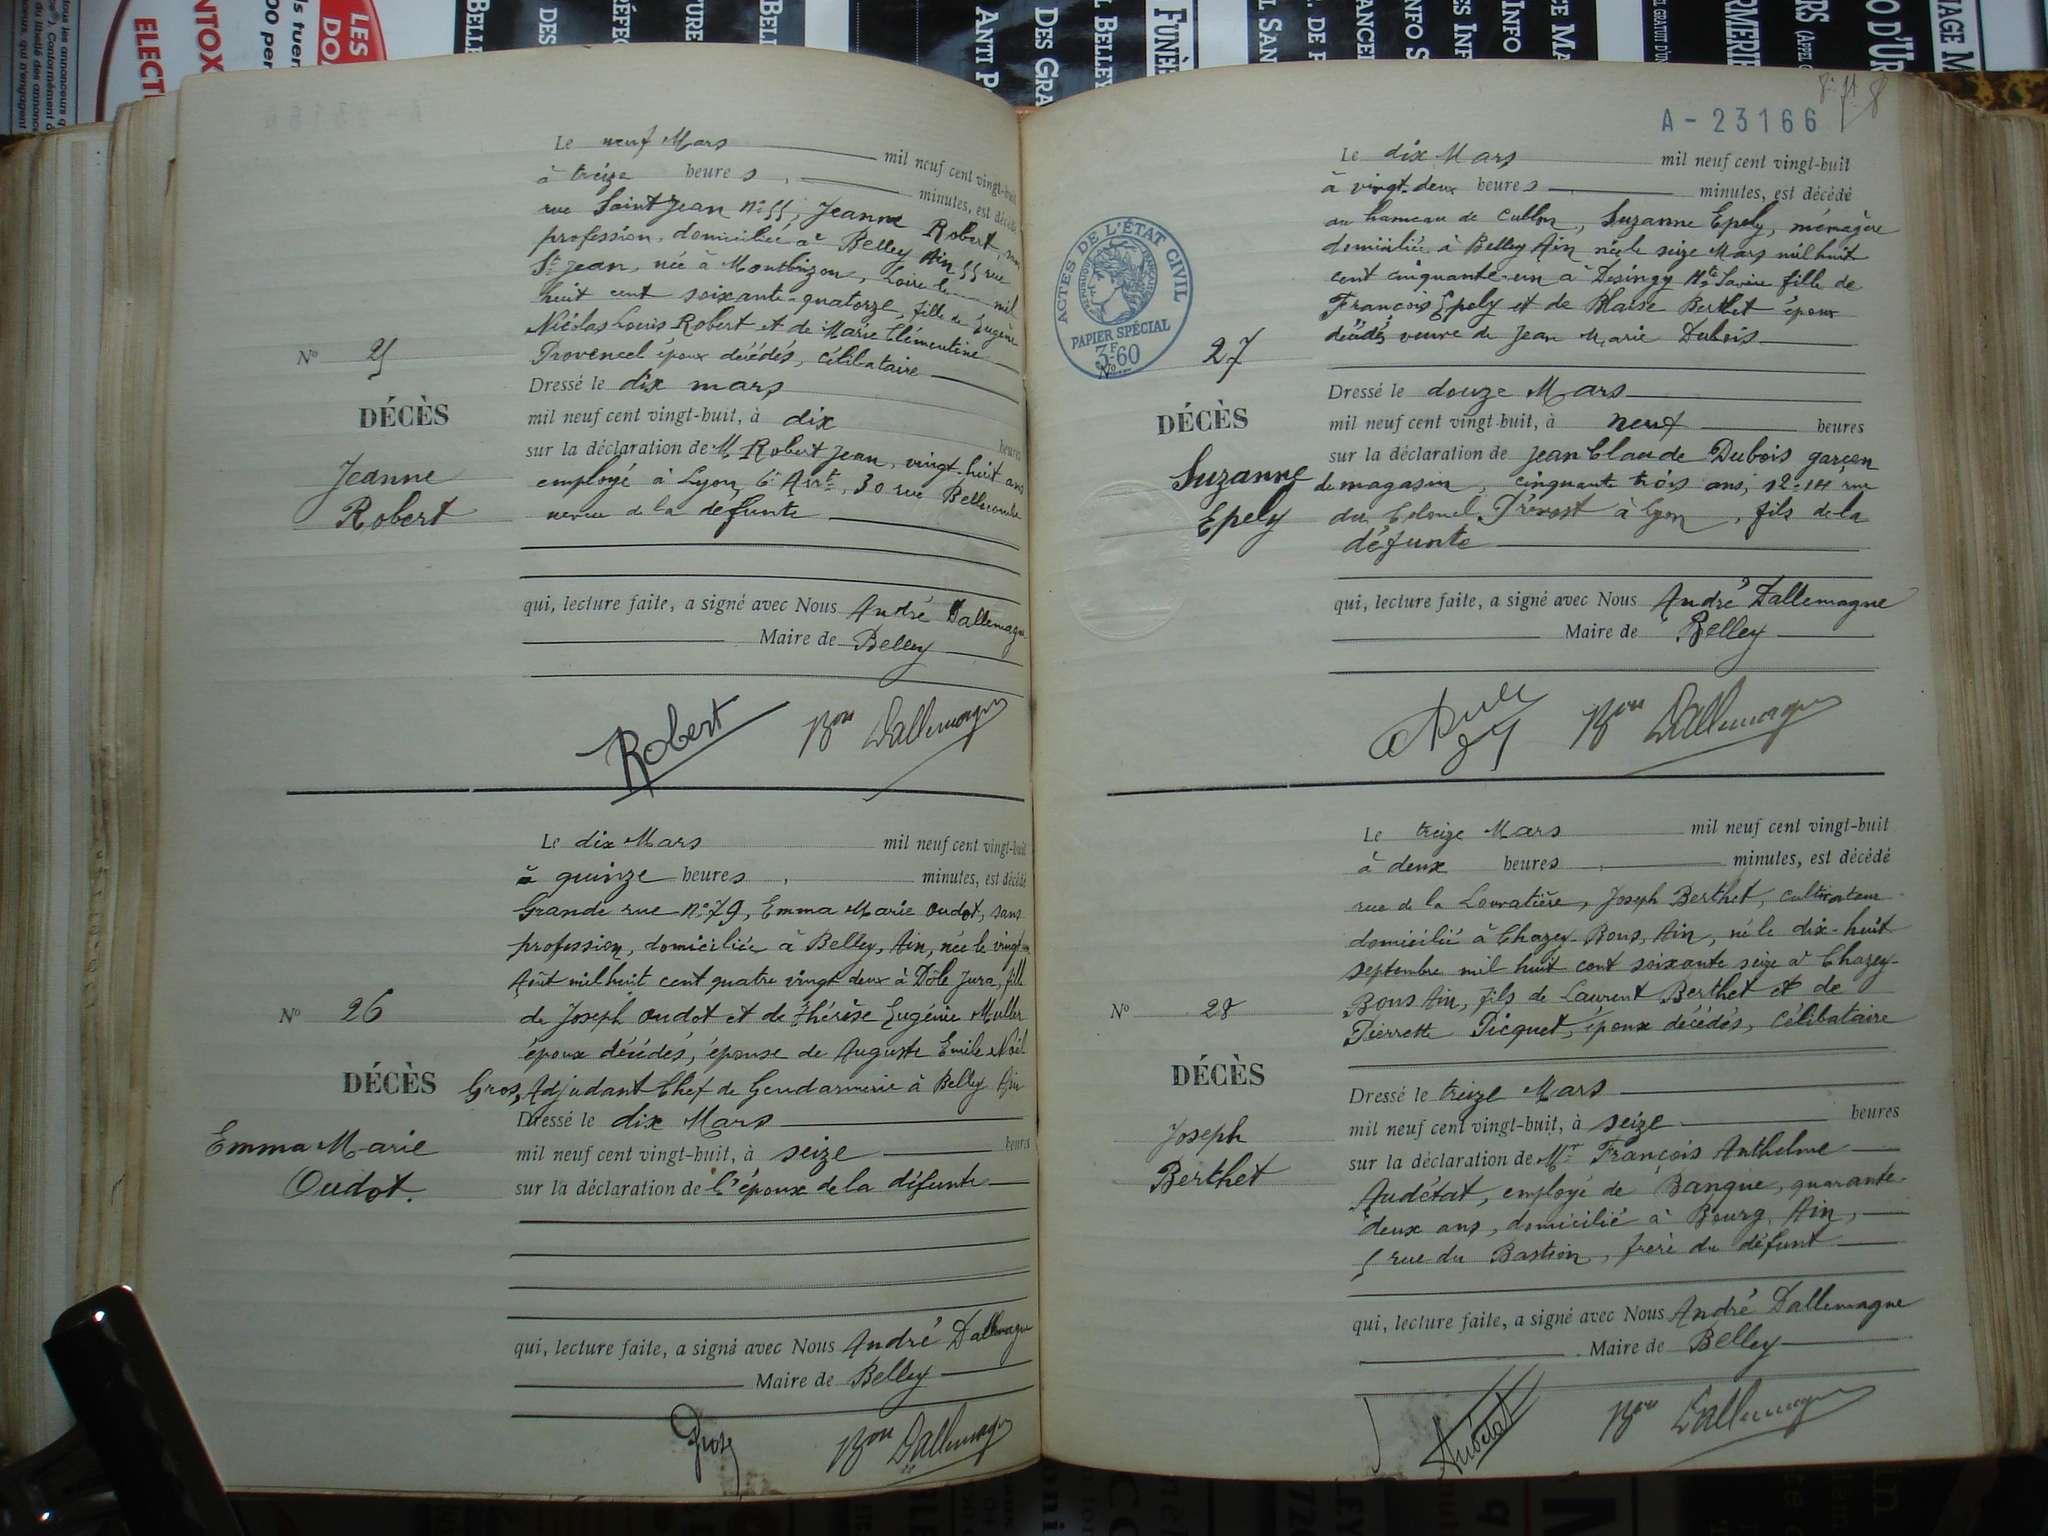 A-23166
Le neuf Mars mil neuf cent vingt-huit
à treize heures, minutes, est décédé
rue Saint Jean N° 55, Jeanne Robert, sans
profession, domiciliée à Belley Ain 55 rue
St Jean, née à Montbrizon, Loire le mil
huit cent soixante-quatorze, fille de Eugène
Nicolas Louis Robert et de Marie Clémentine
Provencel époux décédés, célibataire
N° 25
DÉCÈS
Jeanne
Robert
Dressé le dix mars
mil neuf cent vingt-huit, à dix heures
sur la déclaration de M Robert Jean, vingt-huit ans
employé à Lyon, 6e Arrt, 30 rue Bellecombe
neveu de la défunte
qui, lecture faite, a signé avec Nous André Dallemagne
Maire de Belley
Robert Bon Dallemagne
Le dix Mars mil neuf cent vingt-huit
à quinze heures, minutes, est décédé
Grande rue N° 79, Emma Marie Oudot, sans
profession, domiciliée à Belley, Ain, née le vingt
Août mil huit cent quatre vingt deux à Dôle Jura, fille
de Joseph Oudot et de Thérèse Eugénie Muller
époux décédés, épouse de Auguste Emile Noël
Gros, Adjudant Chef de Gendarmerie à Belley Ain
N° 26
DÉCÈS
Emma Marie
Oudot.
Dressé le dix Mars
mil neuf cent vingt-huit, à seize heures
sur la déclaration de l'époux de la défunte
qui, lecture faite, a signé avec Nous André Dallemagne
Maire de Belley
Gros Bon Dallemagne
Le dix Mars mil neuf cent vingt-huit
à vingt-deux heures, minutes, est décédé
au hameau de Cullon, Suzanne Epely, ménagère
domiciliée à Belley Ain née le seize Mars mil huit
cent cinquante-un à Desingy Hte Savoie fille de
François Epely et de Blaise Berthet époux
décédés veuve de Jean Marie Dubois
ACTES DE L'ÉTAT CIVIL
RÉPUBLIQUE FRANÇAISE
PAPIER SPÉCIAL
3F60
N° 27
DÉCÈS
Suzanne
Epely
Dressé le douze Mars
mil neuf cent vingt-huit, à neuf heures
sur la déclaration de Jean Claude Dubois garçon
de magasin, cinquante trois ans, 12-14 rue
du Colonel Prévost à Lyon, fils de la
défunte
qui, lecture faite, a signé avec Nous André Dallemagne
Maire de Belley
Bon Dallemagne
Le treize Mars mil neuf cent vingt-huit
à deux heures, minutes, est décédé
rue de la Louvatière, Joseph Berthet, cultivateur
domicilié à Chazey-Bons, Ain, né le dix-huit
septembre mil huit cent soixante seize à Chazey-
Bons Ain, fils de Laurent Berthet et de
Pierrette Picquet, époux décédés, célibataire
N° 28
DÉCÈS
Joseph
Berthet
Dressé le treize Mars
mil neuf cent vingt-huit, à seize heures
sur la déclaration de Mr François Anthelme
Audétat, employé de Banque, quarante-
deux ans, domicilié à Bourg, Ain,
5 rue du Bastion, frère du défunt
qui, lecture faite, a signé avec Nous André Dallemagne
Maire de Belley
Audétat Bon Dallemagne